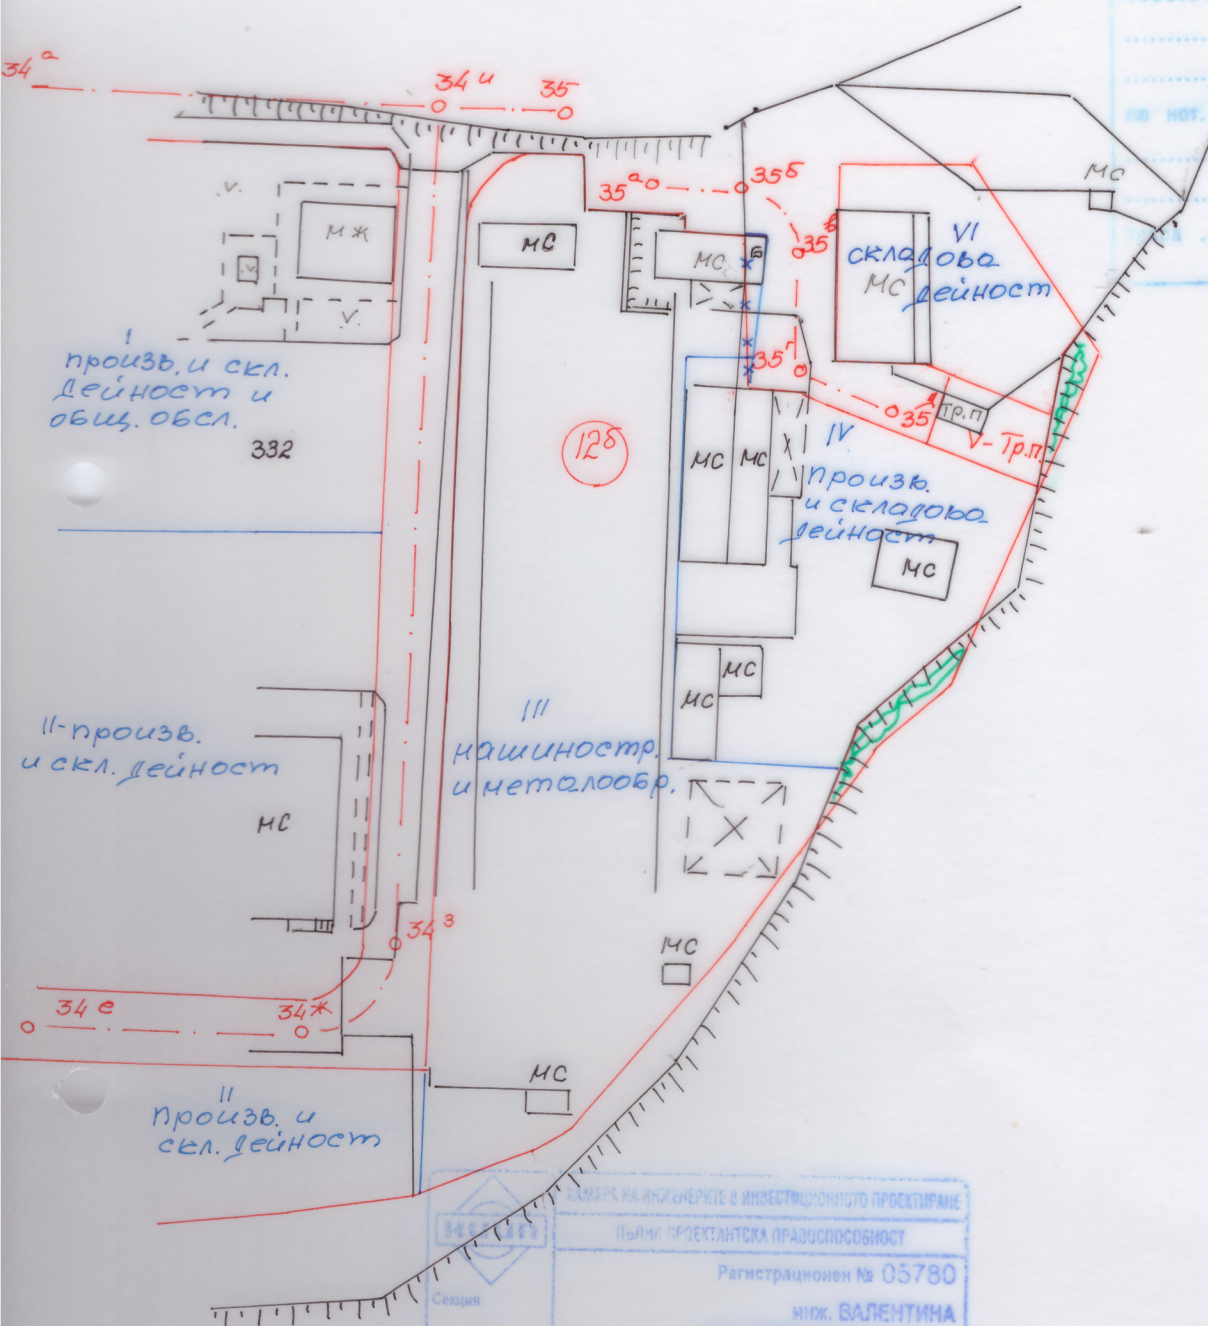 34 а
34 и
35
35 а
35 б
35 в
35 г
35 д
МС
v.
МЖ
.v.
V.
МС
МС
Б
VI
складова
дейност
МС
I
произв. и скл.
дейност и
общ. обсл.
332
12б
Тр.п
V - Тр.п.
МС
МС
IV
произв.
и складова
дейност
МС
МС
МС
II - произв.
и скл. дейност
МС
III
машиностр.
и металообр.
34 з
МС
34 е
34 ж
МС
II
произв. и
скл. дейност
КАМАРА НА ИНЖЕНЕРИТЕ В ИНВЕСТИЦИОННОТО ПРОЕКТИРАНЕ
ПЪЛНА ПРОЕКТАНТСКА ПРАВОСПОСОБНОСТ
Регистрационен № 05780
Секция:
инж. ВАЛЕНТИНА